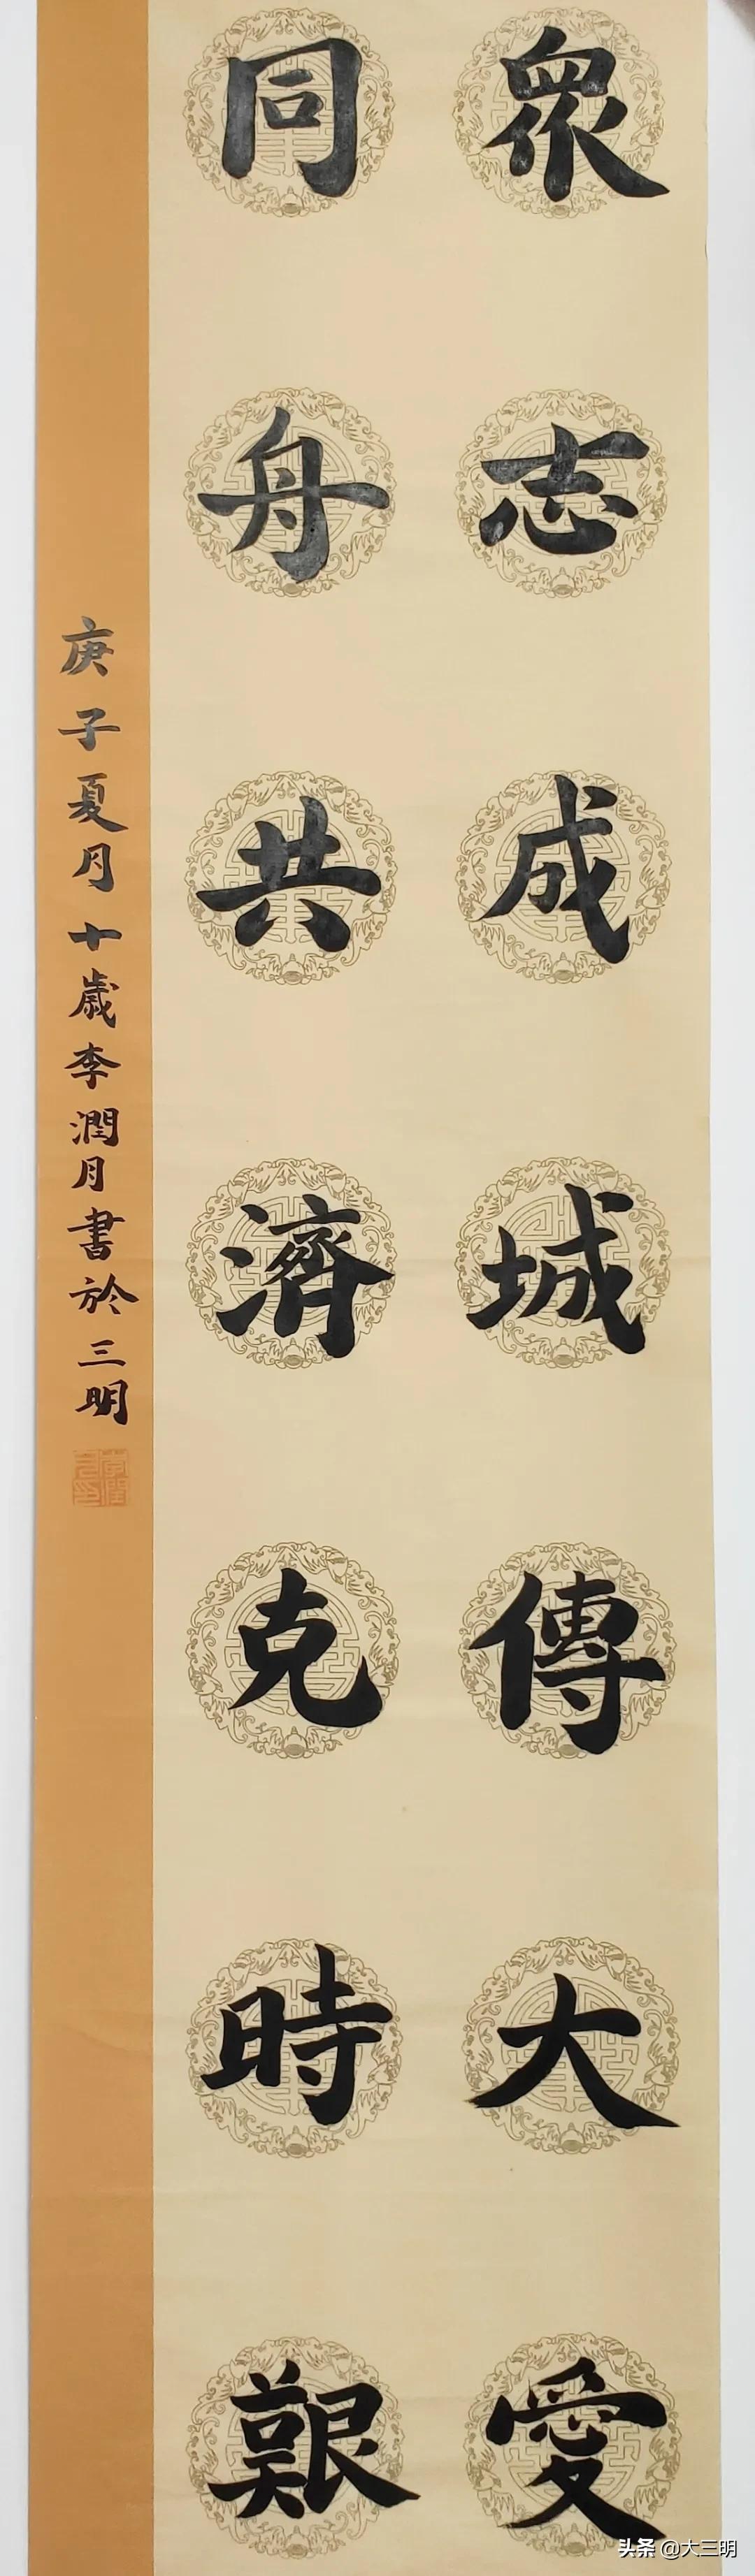 衆志成城傳大愛
同舟共濟克時艱
庚子夏月十歲李潤月書於三明
头条 @大三明